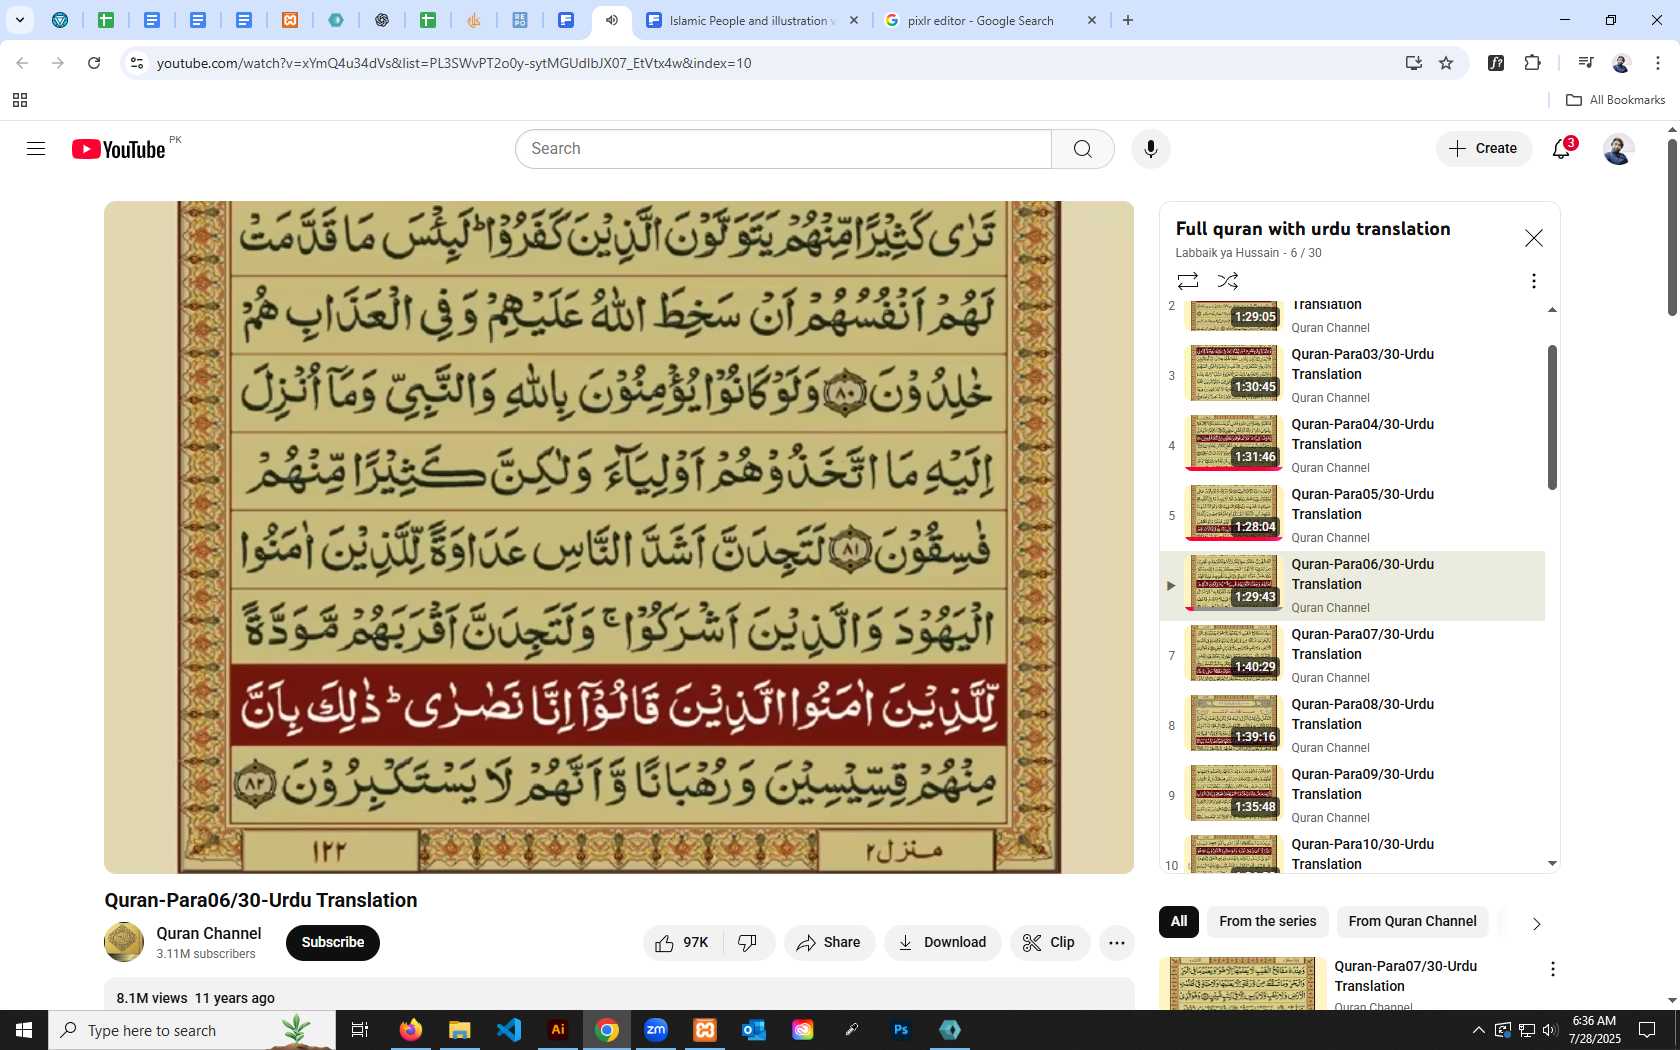 Islamic People and illustration v
pixlr editor - Google Search
youtube.com/watch?v=xYmQ4u34dVs&list=PL3SWvPT2o0y-sytMGUdlbJX07_EtVtx4w&index=10
All Bookmarks
YouTube PK
Search
Create
3
تَرٰى كَثِيْرًا مِّنْهُمْ يَتَوَلَّوْنَ الَّذِيْنَ كَفَرُوْا ؕ لَبِئْسَ مَا قَدَّمَتْ
لَهُمْ اَنْفُسُهُمْ اَنْ سَخِطَ اللّٰهُ عَلَيْهِمْ وَ فِي الْعَذَابِ هُمْ
خٰلِدُوْنَ ﴿۸۰﴾ وَلَوْ كَانُوْا يُؤْمِنُوْنَ بِاللّٰهِ وَالنَّبِيِّ وَمَاۤ اُنْزِلَ
اِلَيْهِ مَا اتَّخَذُوْهُمْ اَوْلِيَآءَ وَلٰكِنَّ كَثِيْرًا مِّنْهُمْ
فٰسِقُوْنَ ﴿۸۱﴾ لَتَجِدَنَّ اَشَدَّ النَّاسِ عَدَاوَةً لِّلَّذِيْنَ اٰمَنُوا
الْيَهُوْدَ وَالَّذِيْنَ اَشْرَكُوْا ۚ وَلَتَجِدَنَّ اَقْرَبَهُمْ مَّوَدَّةً
لِّلَّذِيْنَ اٰمَنُوا الَّذِيْنَ قَالُوْۤا اِنَّا نَصٰرٰى ؕ ذٰلِكَ بِاَنَّ
مِنْهُمْ قِسِّيْسِيْنَ وَ رُهْبَانًا وَّ اَنَّهُمْ لَا يَسْتَكْبِرُوْنَ ﴿۸۲﴾
منزل ۲
۱۲۲
Full quran with urdu translation
Labbaik ya Hussain - 6 / 30
2
1:29:05
Translation
Quran Channel
3
1:30:45
Quran-Para03/30-Urdu
Translation
Quran Channel
4
1:31:46
Quran-Para04/30-Urdu
Translation
Quran Channel
5
1:28:04
Quran-Para05/30-Urdu
Translation
Quran Channel
1:29:43
Quran-Para06/30-Urdu
Translation
Quran Channel
7
1:40:29
Quran-Para07/30-Urdu
Translation
Quran Channel
8
1:39:16
Quran-Para08/30-Urdu
Translation
Quran Channel
9
1:35:48
Quran-Para09/30-Urdu
Translation
Quran Channel
10
Quran-Para10/30-Urdu
Translation
Quran-Para06/30-Urdu Translation
Quran Channel
3.11M subscribers
Subscribe
97K
Share
Download
Clip
8.1M views 11 years ago
All
From the series
From Quran Channel
Quran-Para07/30-Urdu
Translation
Quran Channel
Type here to search
Ai
zm
Ps
6:36 AM
7/28/2025